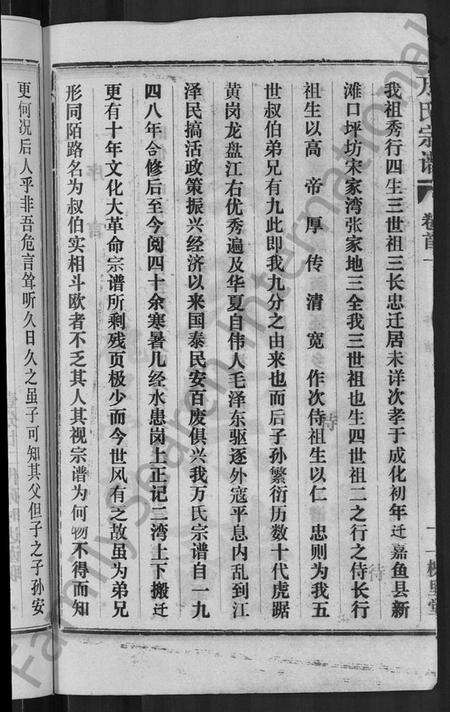 万氏宗谱
卷首一
我祖秀行四生三世祖三长忠迁居未详次孝于成化初年迁嘉鱼县新
滩口坪坊宋家湾张家地三全我三世祖也生四世祖二之行之侍长行
祖生以高帝厚传清宽作次侍祖生以仁忠则为我五
世叔伯弟兄有九此即我九分之由来也而后子孙繁衍历数十代虎踞
黄岗龙盘江右优秀遍及华夏自伟人毛泽东驱逐外寇平息内乱到江
泽民搞活政策振兴经济以来国泰民安百废俱兴我万氏宗谱自一九
四八年合修后至今阅四十余寒暑几经水患岗上正记二湾上下搬迁
更有十年文化大革命宗谱所剩残页极少而今世风有之故虽为弟兄
形同陌路名为叔伯实相斗欧者不乏其人其视宗谱为何物不得而知
更何况后人乎非吾危言耸听久日久之虽子可知其父但子之子孙安
FamilySearch International